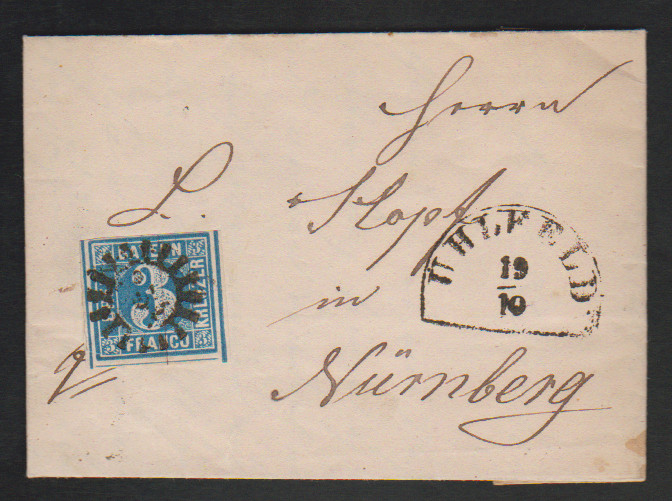 Herrn
L. Kopf
in
Nürnberg
BAYERN
3
KREUZER
FRANCO
UHLFELD
19
10